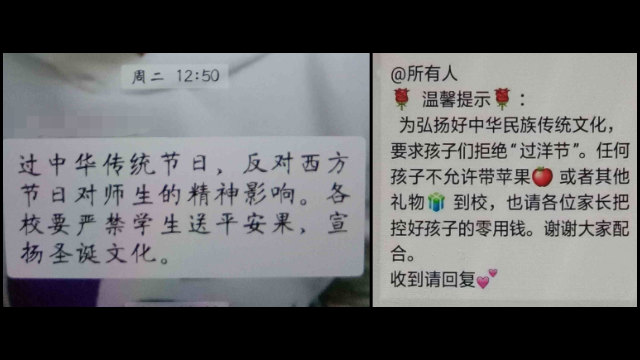 周二 12:50
过中华传统节日，反对西方
节日对师生的精神影响。各
校要严禁学生送平安果，宣
扬圣诞文化。
@所有人
🌹 温馨提示🌹：
为弘扬好中华民族传统文化，
要求孩子们拒绝“过洋节”。任何
孩子不允许带苹果🍎 或者其他
礼物🎁 到校，也请各位家长把
控好孩子的零用钱。谢谢大家配
合。
收到请回复💕